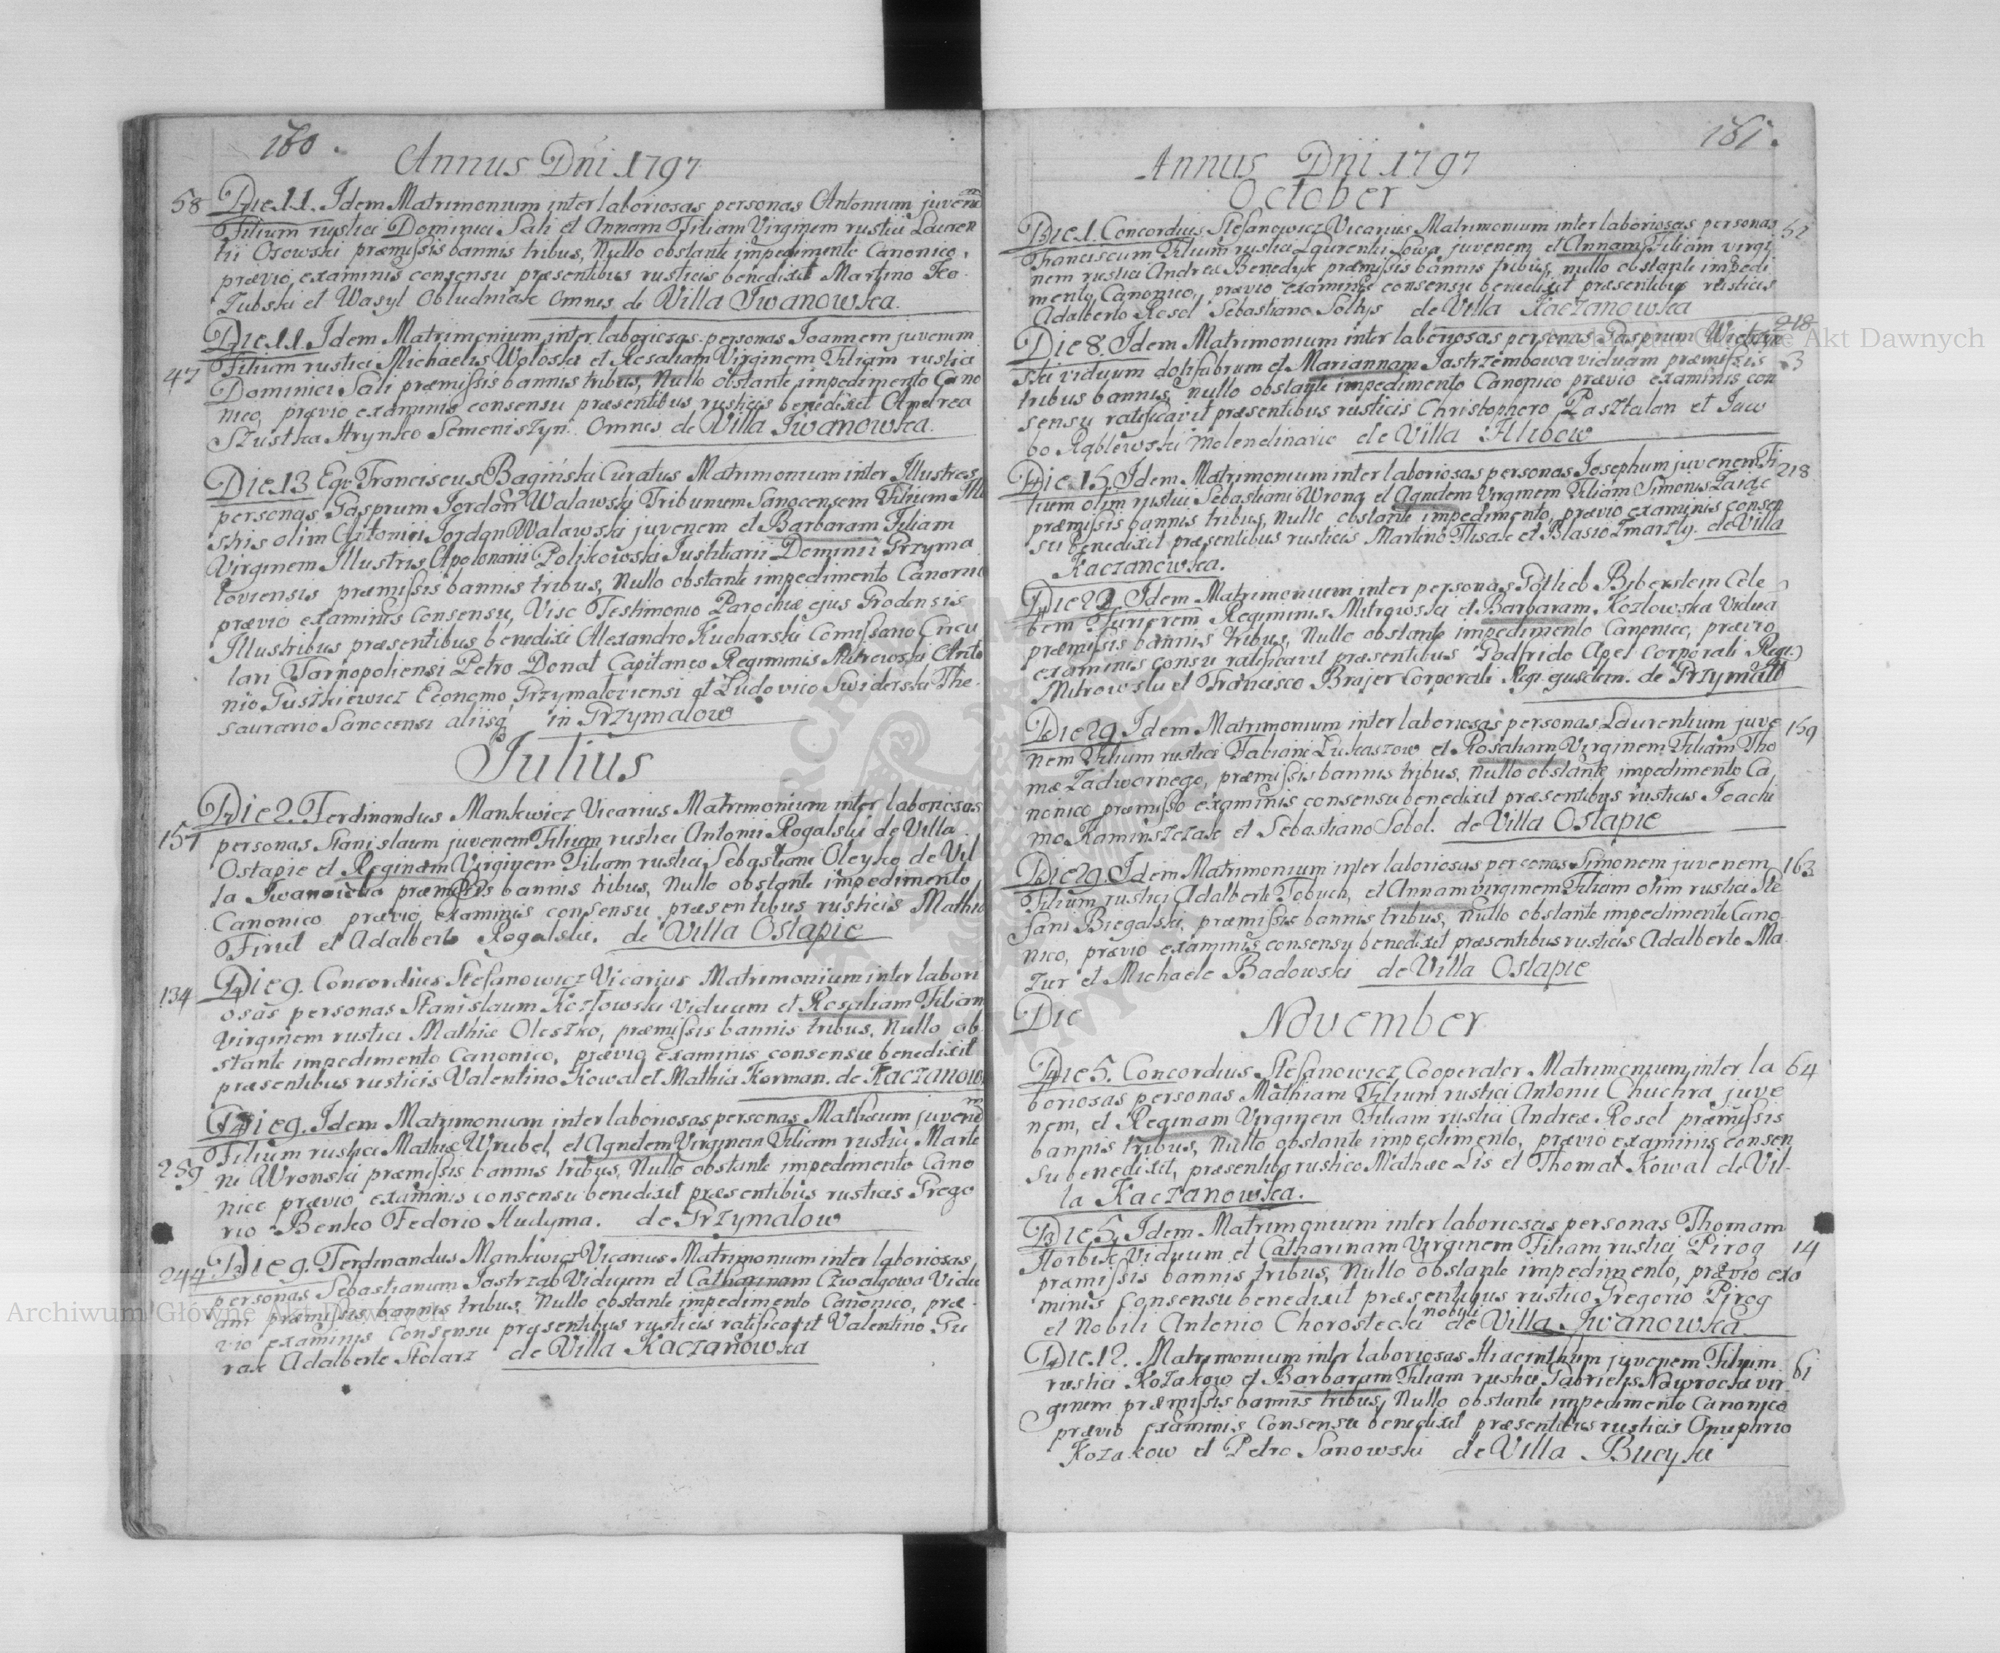 160.
Annus Dni 1797
58 Die 11. Idem Matrimonium inter laboriosas personas Antonium juvenem
Filium rustici Dominici Sali et Annam Filiam Virginem rustici Lauren
tii Osowski præmissis bannis tribus, Nullo obstante impedimento Canonico,
prævio examinis consensu præsentibus rusticis benedixit Martino Ko
Zubski et Wasyl Obludniak Omnes de Villa Iwanowka
Die 11. Idem Matrimonium inter laboriosas personas Joannem juvenem
47 Filium rustici Michaelis Woloski et Rosaliam Virginem Filiam rustici
Dominici Sali præmissis bannis tribus, Nullo obstante impedimento Cano
nico, prævio examinis consensu præsentibus rusticis benedixit Andrea
Szustka Hrynko Semeniszyn. Omnes de Villa Iwanowka.
Die 13 Ego Franciscus Bagiński Curatus Matrimonium inter Illustres
personas Gasprum Jordan Walawski Tribunum Sanocensem Filium Illu
stris olim Antonii Jordan Walawski juvenem et Barbaram Filiam
Virginem Illustris Apolonari Polikowski Justitiarii Dominii Grzyma
loviensis præmissis bannis tribus, Nullo obstante impedimento Canonico
prævio examinis consensu, Viso Testimonio Parochiæ ejus Grodensis
Illustribus præsentibus benedixi Alexandro Kucharski Comissario Circu
lari Tarnopoliensi Petro Donat Capitaneo Regiminis Mitrowski Anto
nio Juszkiewicz Economo Grzymaloviensi et Ludovico Swiderski The
saurario Sanocensi aliisq in Grzymalow
Julius
Die 2. Ferdinandus Mankwicz Vicarius Matrimonium inter laboriosas
157 personas Stanislaum juvenem Filium rustici Antonii Rogalski de Villa
Ostapie et Reginam Virginem Filiam rustici Sebastiani Oleyko de Vil
la Iwanowka præmissis bannis tribus, Nullo obstante impedimento
Canonico prævio examinis consensu præsentibus rusticis Mathia
Firut et Adalberto Rogalski. de Villa Ostapie
134 Die 9. Concordius Stefanowicz Vicarius Matrimonium inter labori
osas personas Stanislaum Kozłowski Viduum et Rosaliam Filiam
Virginem rustici Mathiæ Oleszko, præmissis bannis tribus, Nullo ob
stante impedimento Canonico, prævio examinis consensu benedixit
præsentibus rusticis Valentino Kowal et Mathia Korman. de Kaczanow
Die 9. Idem Matrimonium inter laboriosas personas Mathæum juvenem
Filium rustici Mathiæ Wrubel, et Agnetem Virginem Filiam rustici Marti
259 ni Wronski præmissis bannis tribus, Nullo obstante impedimento Cano
nico prævio examinis consensu benedixit præsentibus rusticis Grego
rio Benko Fedorio Hudyma. de Grzymalow
244 Die 9. Ferdinandus Mankwicz Vicarius Matrimonium inter laboriosas
personas Sebastianum Jastrząb Viduum et Catharinam Czwalgowa Vidu
am præmissis bannis tribus, Nullo obstante impedimento Canonico, præ-
vio examinis consensu præsentibus rusticis ratificavit Valentino Gu
rak Adalberto Stolarz de Villa Kaczanowka
161.
Annus Dnii 1797
October
Die 1. Concordius Stefanowicz Vicarius Matrimonium inter laboriosas personas 52
Franciscum Filium rustici Laurentii Sowa juvenem et Annam Filiam virgi
nem rustici Andrea Benedyk præmissis bannis tribus, nullo obstante impedi
mento Canonico, prævio examinis consensu benedixit præsentibus rusticis
Adalberto Rosol Sebastiano Soltys de Villa Kaczanowka
Die 8. Idem Matrimonium inter laboriosas personas Gasprum 218
ski viduum dolifabrum et Mariannam Jastrzembowa viduam præmissis 3
tribus bannis, nullo obstante impedimento Canonico prævio examinis con
sensu ratificavit præsentibus rusticis Christophoro Pasztalan et Jaco
bo Rąblewski Molendinario de Villa Hlibow
Die 15. Idem Matrimonium inter laboriosas personas Josephum juvenem Fi 218
lium olim rustici Sebastiani Wrona et Agnetem Virginem Filiam Simonis Zaiąc
præmissis bannis tribus, Nullo obstante impedimento, prævio examinis consen
su benedixit præsentibus rusticis Martino Thsak et Blasio Zmarzły. de Villa
Kaczanowka.
Die 22. Idem Matrimonium inter personas Gotlieb Biberstein Cele
bem Furirem Regiminis Mitrowski et Barbaram Kozlowska Vidua
præmissis bannis tribus, Nullo obstante impedimento Canonico, prævio
examinis consu ratificavit præsentibus Godfrido Agel Corporali Regi:
Mitrowski et Francisco Brajer Corporali Regi ejusdem. de Grzymall
Die 29. Idem Matrimonium inter laboriosas personas Laurentium juve 159
nem Filium rustici Fabiani Łukaszow et Rosaliam Virginem Filiam Tho
mæ Zadwornego, præmissis bannis tribus, Nullo obstante impedimento Ca
nonico præmisso examinis consensu benedixit præsentibus rusticis Joachi
mo Kaminszczak et Sebastiano Sobol. de Villa Ostapie
Die 29. Idem Matrimonium inter laboriosas personas Simonem juvenem 163
Filium rustici Adalberti Tobuch, et Annam virginem Filiam olim rustici Ste
fani Biegalski, præmissis bannis tribus, Nullo obstante impedimento Cano
nico, prævio examinis consensu benedixit præsentibus rusticis Adalberto Ma
zur et Michaele Badowski de Villa Ostapie
Die
November
Die 5. Concordius Stefanowicz Cooperator Matrimonium inter la 64
boriosas personas Mathiam Filium rustici Antonii Chuchra juve
nem, et Reginam Virginem Filiam rustici Andreæ Rosol præmissis
bannis tribus, Nullo obstante impedimento, prævio examinis consen
su benedixit, præsentibq rustico Mathæo Lis et Thomas Kowal de Vil-
la Kaczanowka.
Die 5. Idem Matrimonium inter laboriosas personas Thomam
Horbik Viduum et Catharinam Virginem Filiam rustici Pirog 14
præmissis bannis tribus, Nullo obstante impedimento, prævio exa
minis consensu benedixit præsentibus rustico Gregorio Pirog
et Nobili Antonio Chorostecki nobili de Villa Iwanowka
Die 12. Matrimonium inter laboriosas Hiacinthum juvenem Filium 61
rustici Kozakow et Barbaram Filiam rustici Gabrielis Nawrocki vir-
ginem præmissis bannis tribus, Nullo obstante impedimento Canonico
prævio examinis consensu benedixit præsentibus rusticis Onuphrio
Kozakow et Petro Sanowski de Villa Bucyki
Archiwum Główne Akt Dawnych